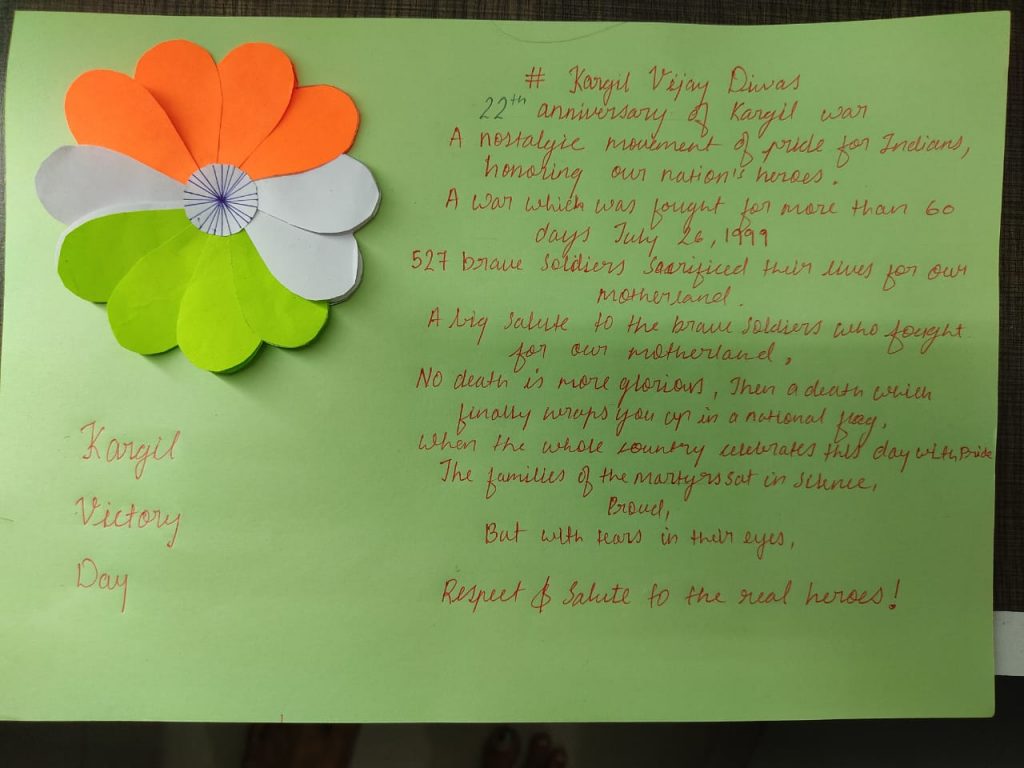 # Kargil Vijay Diwas
22th anniversary of Kargil war
A nostalgic movement of pride for Indians,
honoring our nation's heroes.
A war which was fought for more than 60
days July 26, 1999
527 brave soldiers sacrificed their lives for our
motherland.
A big salute to the brave soldiers who fought
for our motherland,
No death is more glorious, Then a death which
finally wraps you up in a national flag,
When the whole country celebrates this day with Pride
The families of the martyrs sat in silence,
Proud,
But with tears in their eyes,
Respect & Salute to the real heroes!
Kargil
Victory
Day